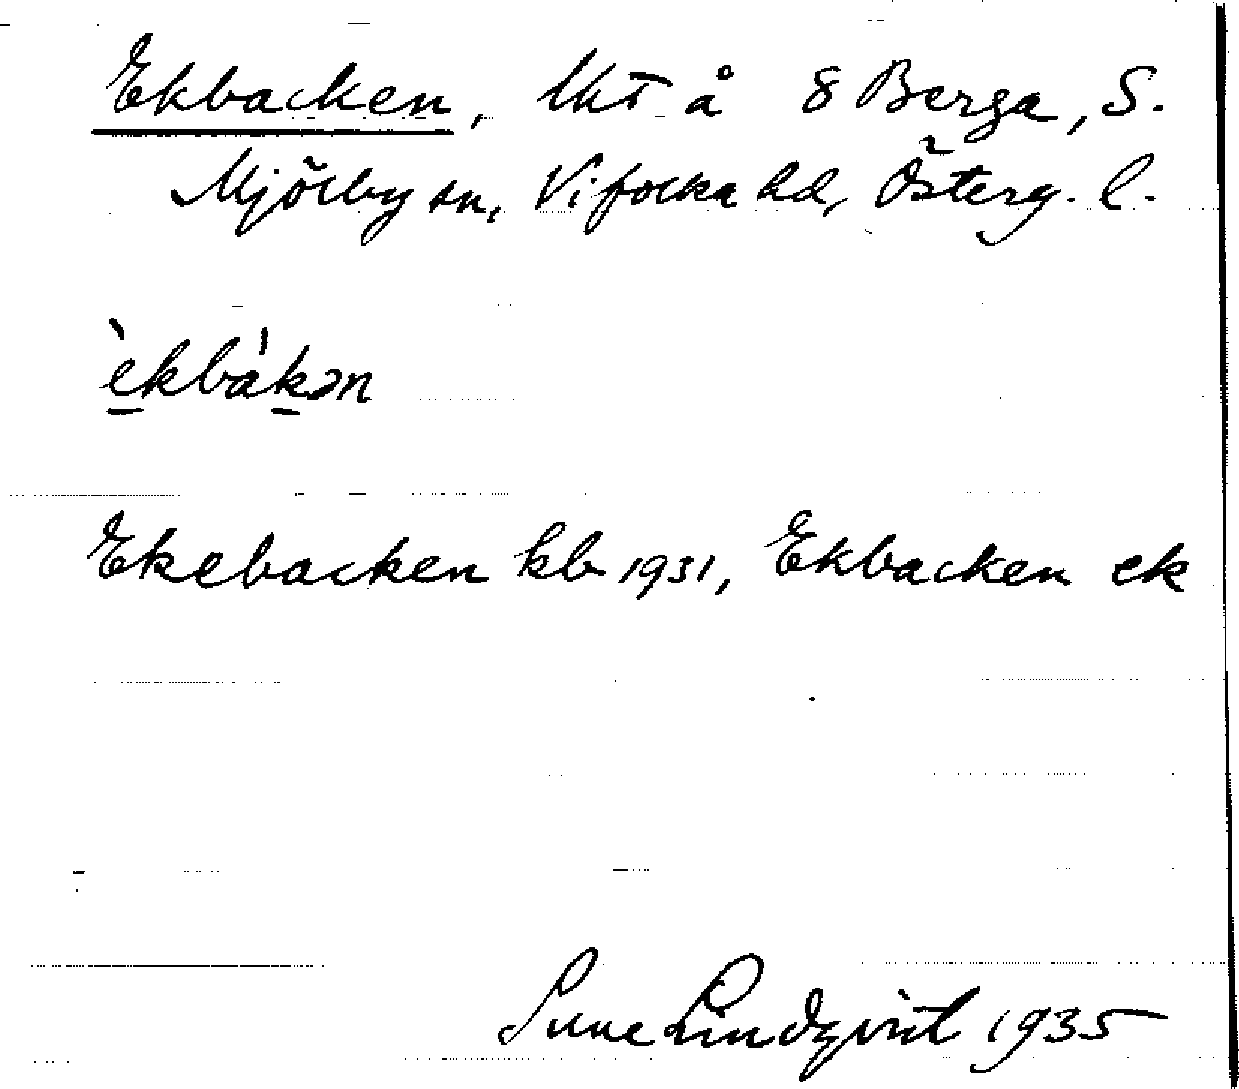 Ekbacken, lht å 8 Berga, S.
Mjölby sn, Vifolka hd, Österg. l.
`ekbà'kən
Ekebacken kb 1931, Ekbacken ek
Sune Lindqvist 1935